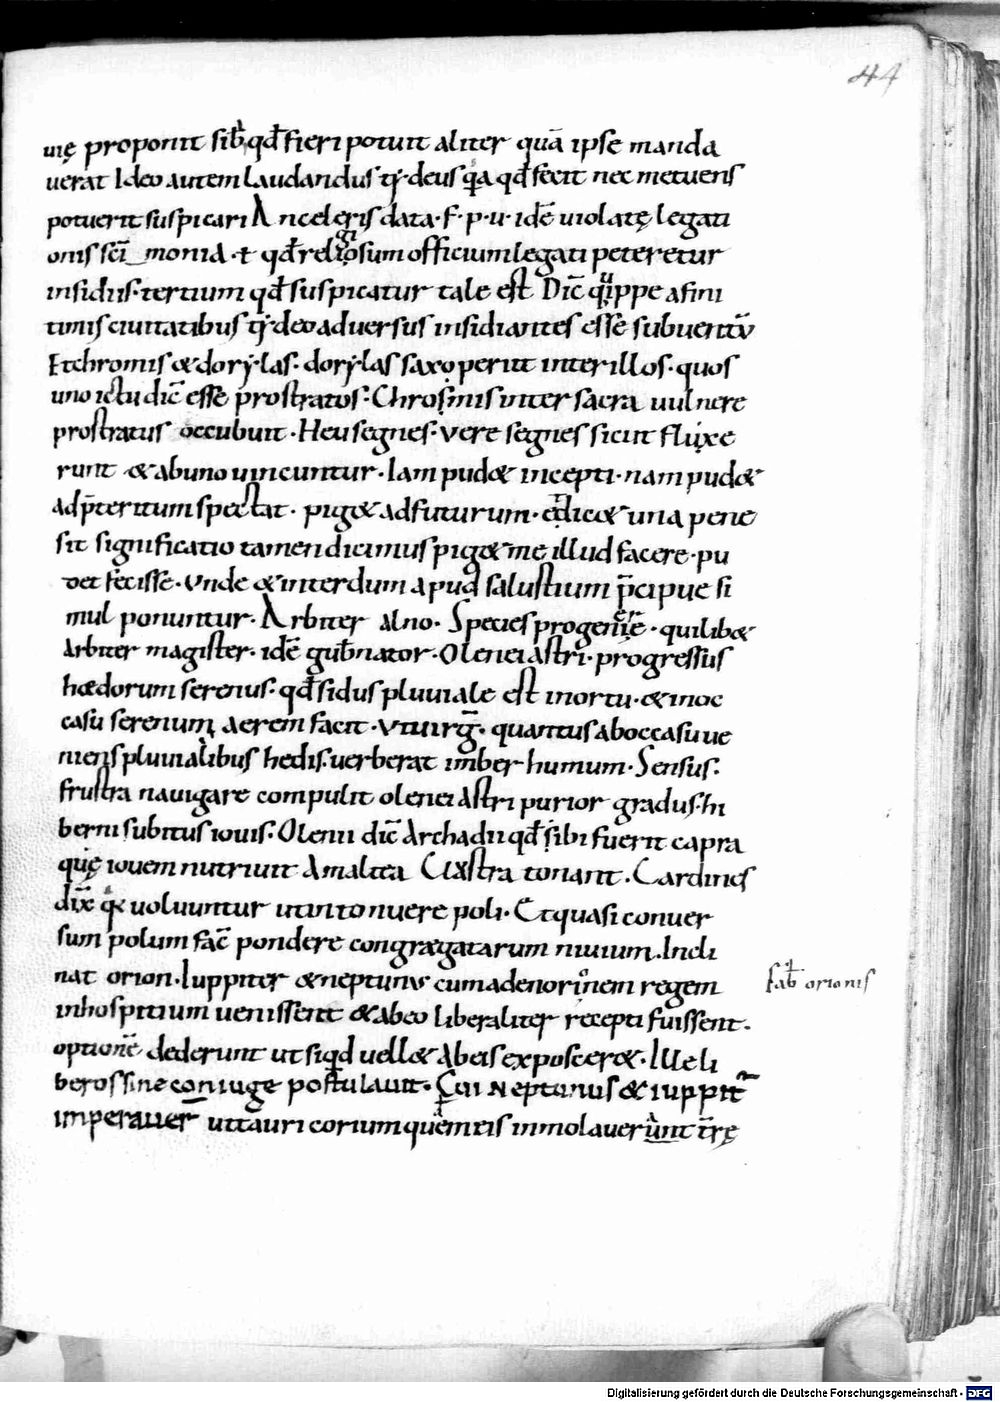 44
uię proponit sib̄ qđ fieri potuit aliter quā ipse manda
uerat Ideo autem laudandus tẏdeus q̄a qđ fecit nec metuens
potuerit suspicari An celeris data · f · p · u · idē uiolatę legati
onis scī monia · ł qđ religiosum officium legati peteretur
insidiis · tertium qđ suspicatur tale est Dic̄ quippe a fini
timis ciuitatibus tẏdeo aduersus insidiantes esse subuentū
Et chromis & dorẏlas · dorẏlas saxo periit inter illos · quos
uno ictu dic̄ esse prostratos · Chrosmis inter sacra uulnere
prostratus occubuit · Heu segnes · vere segnes si cui fluxe
runt & ab uno uincuntur · Iam pud& incepti · nam pud&
ad p̄teritum spectat · pig& ad futurum · & lic& una pene
sit significatio tamen dicimus pig& me illud facere · pu
det fecisse · vnde & interdum apud salustium p̄cipue si
mul ponuntur · Arbiter alno · Species progeniē · quilib&
Arbiter magister · idē gub̄nator · Olenei Astri · progressus
hædorum serenus · qđ sidus pluuiale est in ortu · & in oc
casu serenum aerem facit · vt uirg̅ · quantus ab occasu ue
niens pluuialibus hedis · uerberat imber humum · Sensus ·
frustra nauigare compulit olenei Astri purior gradus · hi
berni subitus iouis · Olenii dic̄ Archadii qđ sibi fuerit capra
quę iouem nutriuit Amaltea Claxstra tonant · Cardines
dix̄ q volvuntur ut intonuere poli · Et quasi conuer
sum polum fac̄ pondere congrægatarum niuium · Incli
nat orion · Iuppiter & neptunus cum ad enorinem regem
in hospitium uenissent & ab eo liberaliter recepti fuissent ·
optionē dederunt ut siqđ uell& Ab eis exposcer& · Ille li
beros sine coniuge postulauit · Cui Neptunus & iuppit̄
imperauer̄ ut tauri corium quem eis inmolauerunt t̄rę
fab̄ orionis
Digitalisierung gefördert durch die Deutsche Forschungsgemeinschaft - DFG